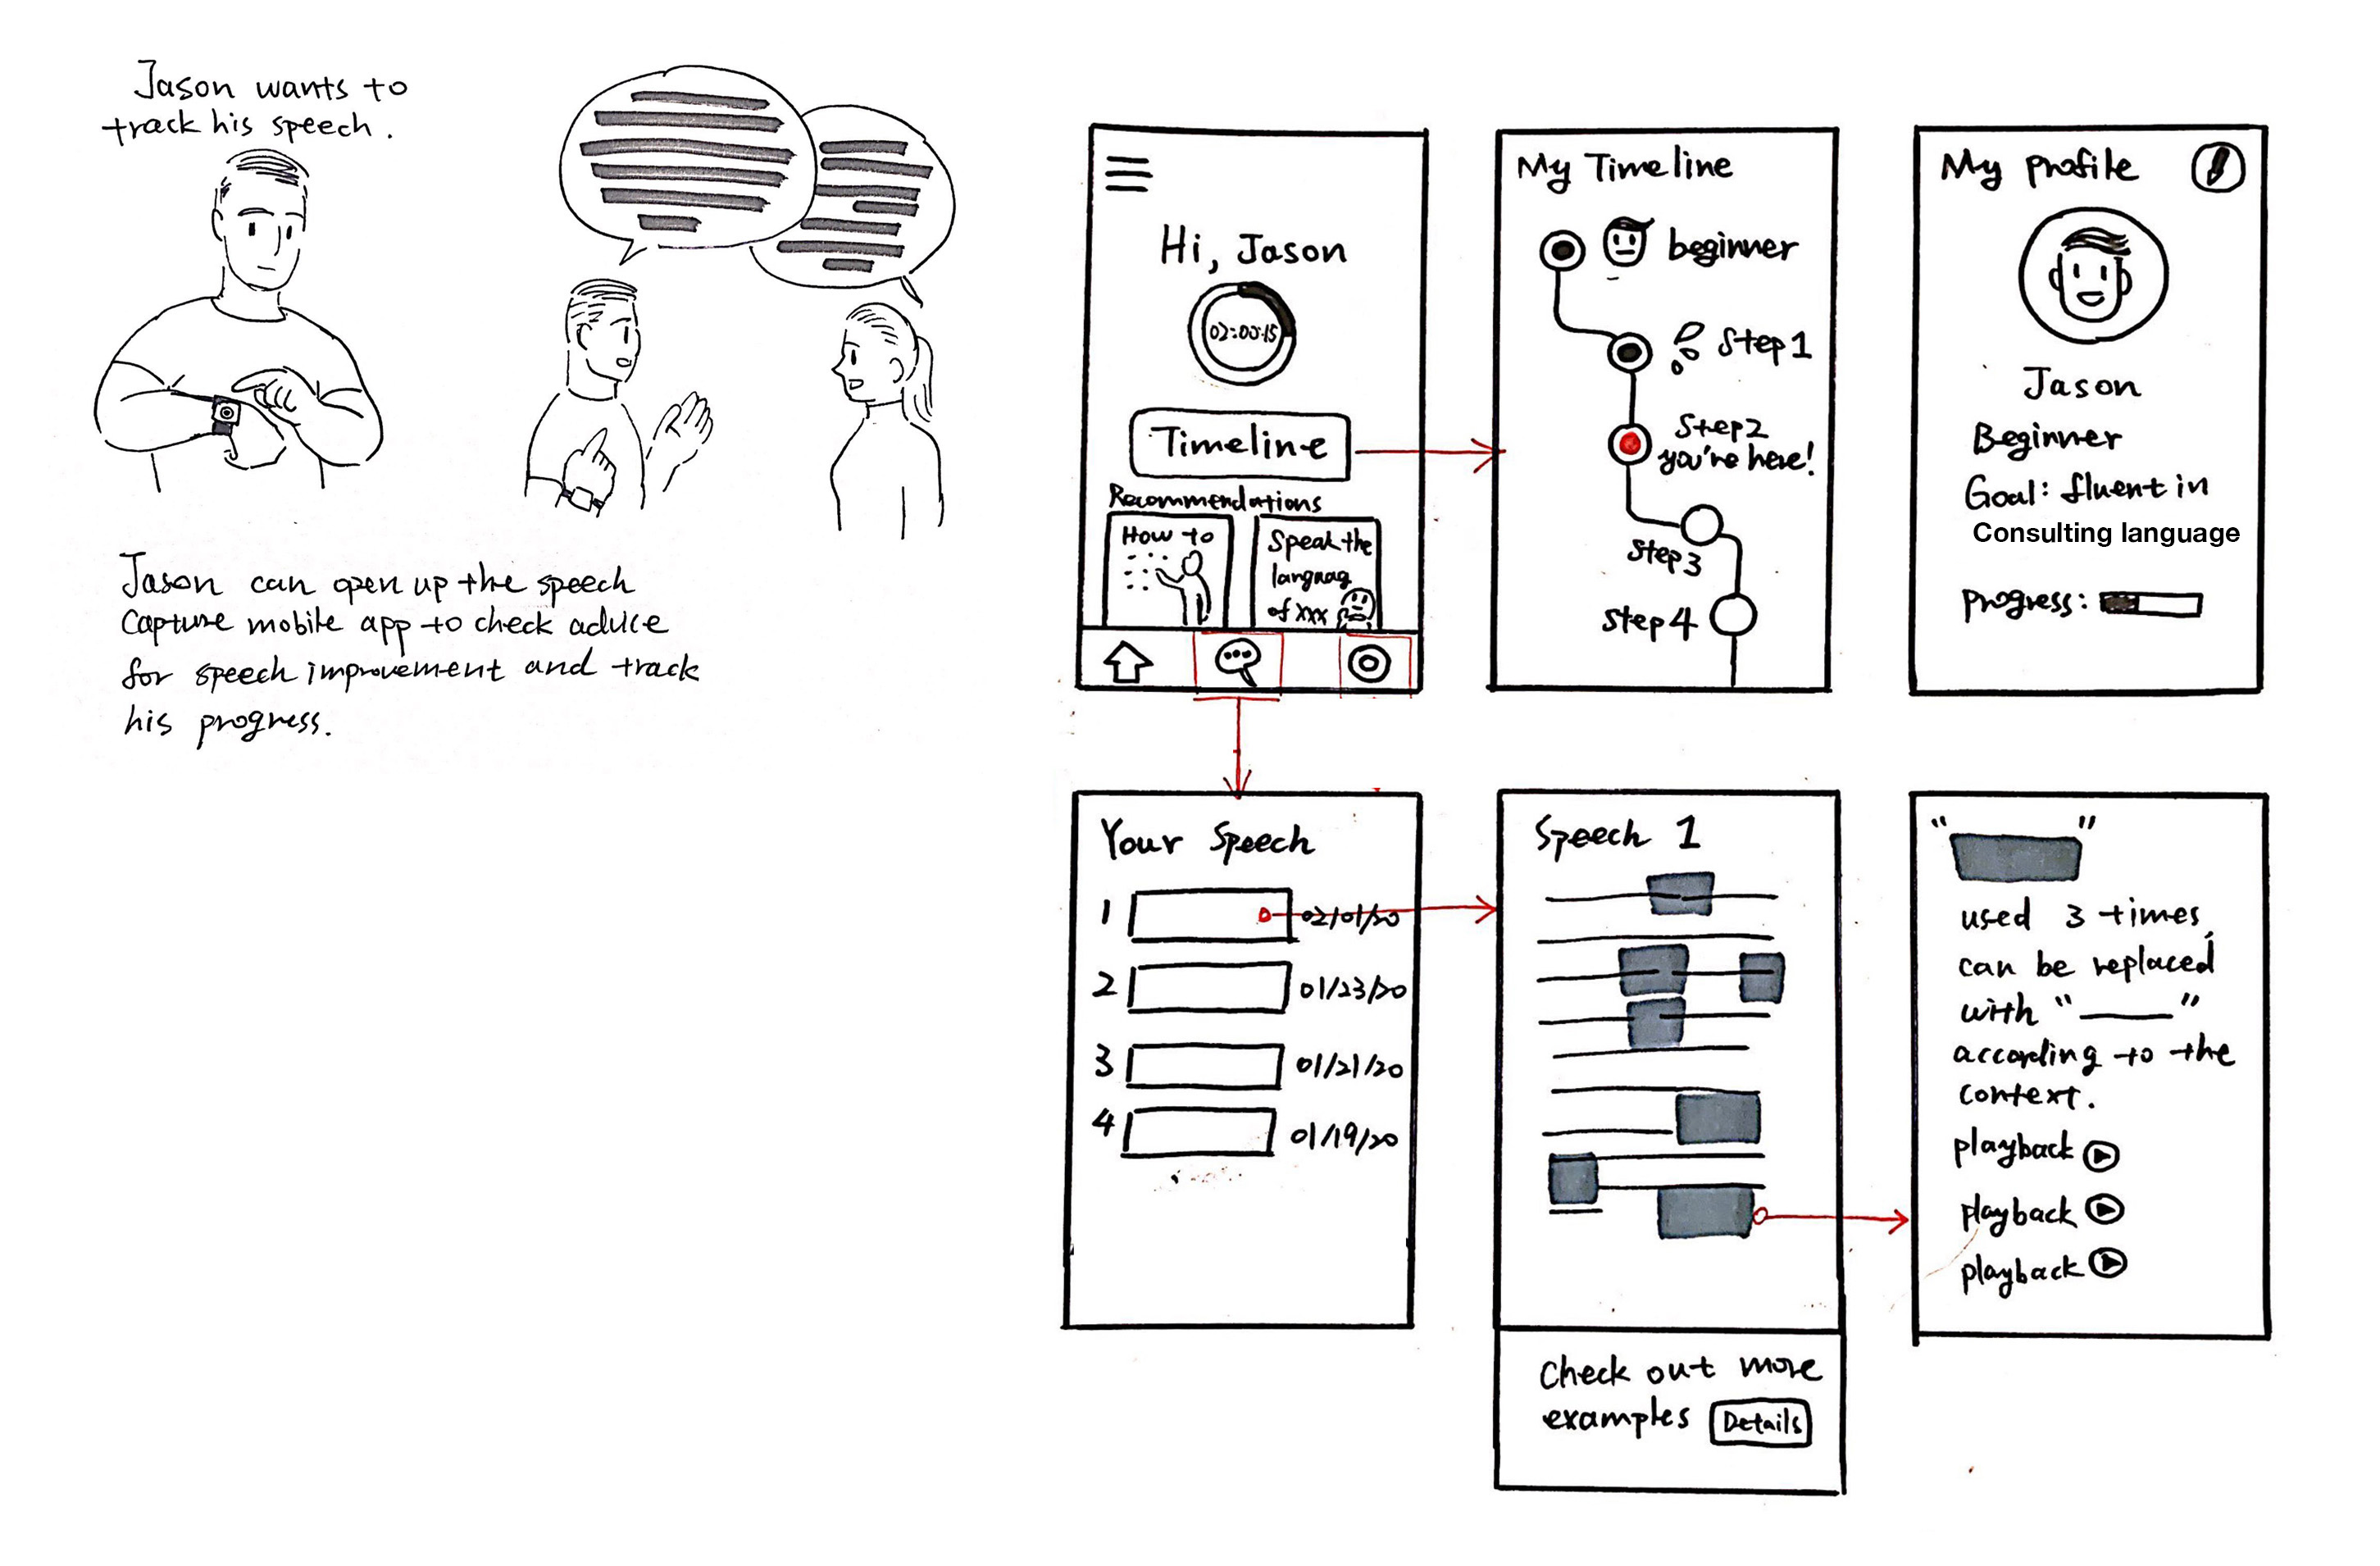 Jason wants to
track his speech.
Jason can open up the speech
Capture mobile app to check advice
for speech improvement and track
his progress.
Hi, Jason
02:00:15
Timeline
Recommendations
How to
Speak the
languag
of xxx
My Timeline
beginner
Step 1
Step 2
you're here!
Step 3
Step 4
My Profile
Jason
Beginner
Goal: fluent in
Consulting language
Progress:
Your Speech
1 02/01/20
2 01/23/20
3 01/21/20
4 01/19/20
Speech 1
Check out more
examples Details
" "
used 3 times,
can be replaced
with "____"
according to the
context.
playback
playback
playback